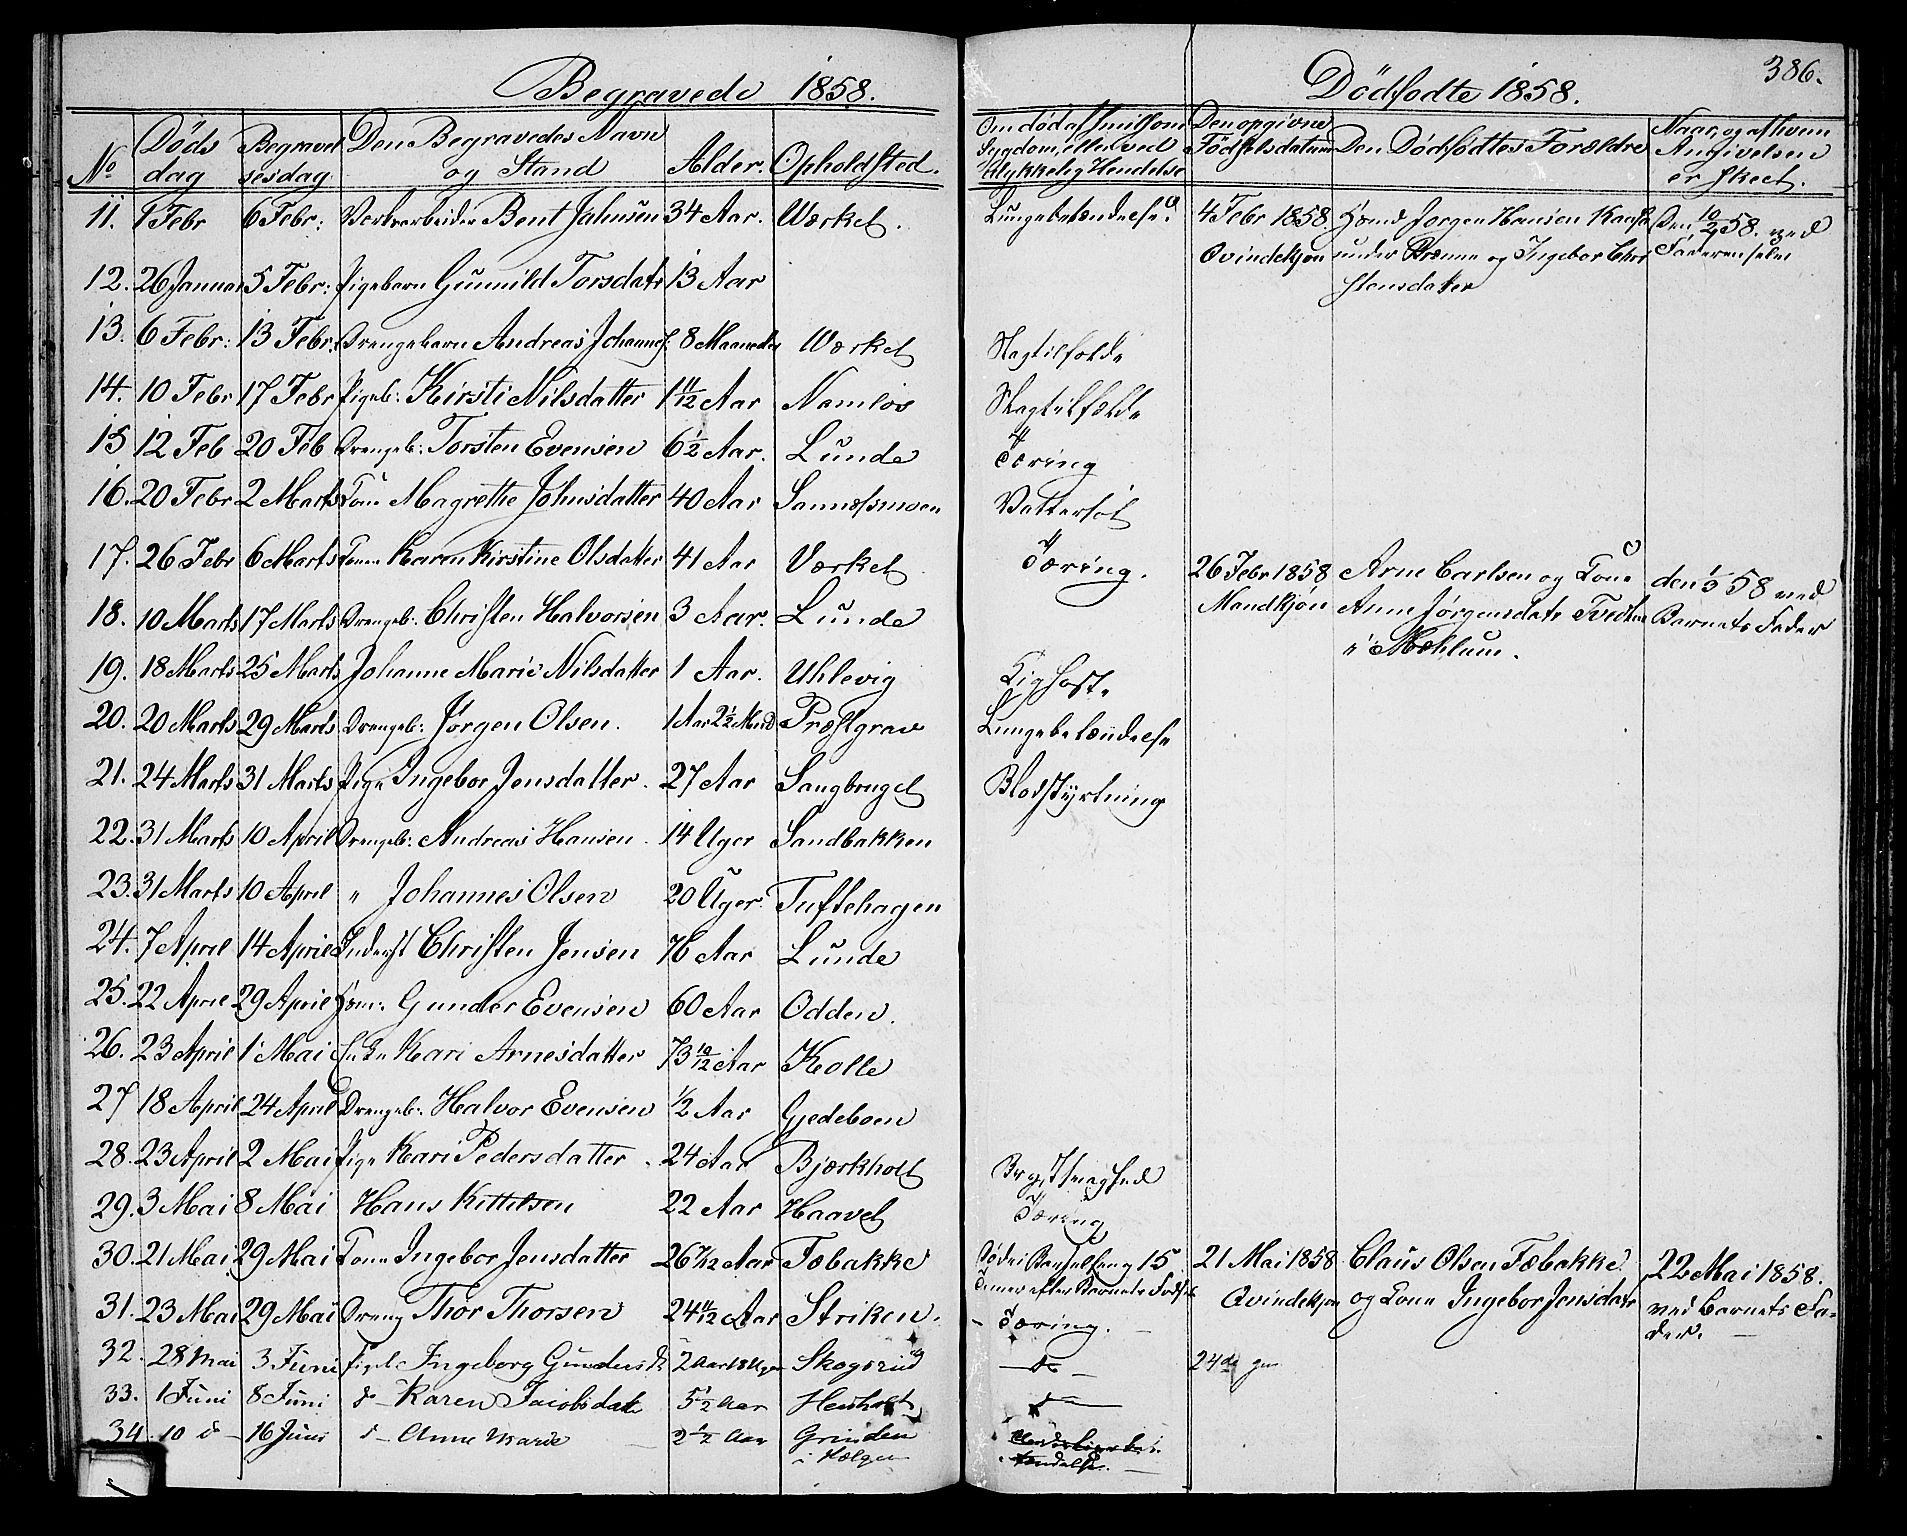 Begravede 1858.
No Døds dag Begravelsesdag Den Begravedes Navn og Stand Alder. Opholdsted.
11. 1 Febr 6 Febr: Bent Jahnsen 34 Aar. Værket.
12. 26 Januar 5 Febr: Pigebarn Gunnild Torsdatr 13 Aar
13. 6 Febr: 13 Febr. Drengebarn Andreas Johannes. 8 Maaneder Værket
14. 10 Febr 17 Febr Pigeb: Kirsti Nilsdatter 1 11/12 Aar Namløs
15 12 Feb 20 Feb Drengeb: Torsten Evensen 6 1/2 Aar. Lunde
16. 20 Febr 2 Marts Kone Magrethe Johnsdatter 40 Aar Sannesmoen
17. 26 Febr 6 Marts Konen Karen Kirstine Olsdatter 41 Aar Værket
18. 10 Marts 17 Marts Drengeb. Christen Halvorsen 3 Aar. Lunde
19. 18 Marts 25 Marts Johanne Marie Nilsdatter 1 Aar. Uhlevig
20. 20 Marts 29 Marts Drengeb: Jørgen Olsen. 1 Aar 2 1/2 Mnd Præstgrav
21. 24 Marts 31 Marts Pige Ingebor Jensdatter. 27 Aar Saugbruget
22. 31 Marts 10 April Drengeb: Andreas Hansen. 14 Uger Sandbakken
23. 31 Marts 10 April " Johannes Olsen 20 Uger. Tuftehagen
24. 7 April 14 April Inderst Christen Jensen 76 Aar Lunde
25. 22 April 29 April Gunder Evensen 60 Aar Odden.
26. 23 April 1 Mai Enke Kari Arnesdatter 73 10/12 Aar Kolle
27 18 April 24 April Drengeb: Halvor Evensen 1/2 Aar Gjedeboen
28. 23 April 2 Mai Pige Kari Pedersdatter. 24 Aar Bjærkholt
29. 3 Mai 8 Mai Hans Kittelsen 22 Aar Haavet
30. 21 Mai 29 Mai Kone Ingebor Jensdatter 26 Aar Fæbakke
31. 23 Mai 29 Mai Dreng Thor Thorsen 24 11/12 Aar Striken.
32. 28 Mai 3 Juni Pigeb Ingeborg Gunders D. 2 Aar 18 Uger Skogsrud
33. 1 Juni 8 Juni d- Karen Jacobsdatr 5 1/2 Aar
34 10 d- 16 Juni d- Anne Marie 2 1/2 Aar Grinden
i Hælgen
Dødfødte 1858. 386.
Om død af smitsom Sygdom, eller ved Ulykkelig Hendelse
Den opgivne Fødselsdatum
Den Dødfødtes Forældre
Naar, og af hvem Angivelsen er skeet.
Lungebetændelse. 4 Febr 1858. Jorgen Hansen Den 10/2 58. ved
Qvindekjøn under og Ingebor Chri Faderen selv
stensdatter
Slagtilfælde
Slagtilfælde
Tæring
Vattersot
Tæring. 26 Febr 1858 Arne Carlsen og Kone den 1/3 58 ved
Mandkjøn Anne Jørgensdatr Tvedten Barnets Fader
i Mæhlum.
Kighoste
Lungebetændelse
Blodstyrtning
Brystsvaghed
Tæring
Døde i Barselseng 15 21 Mai 1858 Claus Olsen Fæbakke 22 Mai 1858.
Timer efter Barnets Fødsel Qvindekjøn og Kone Ingebor Jensdatr ved Barnets Fa-
- Tæring. - der. -
- do - 24de
- do -